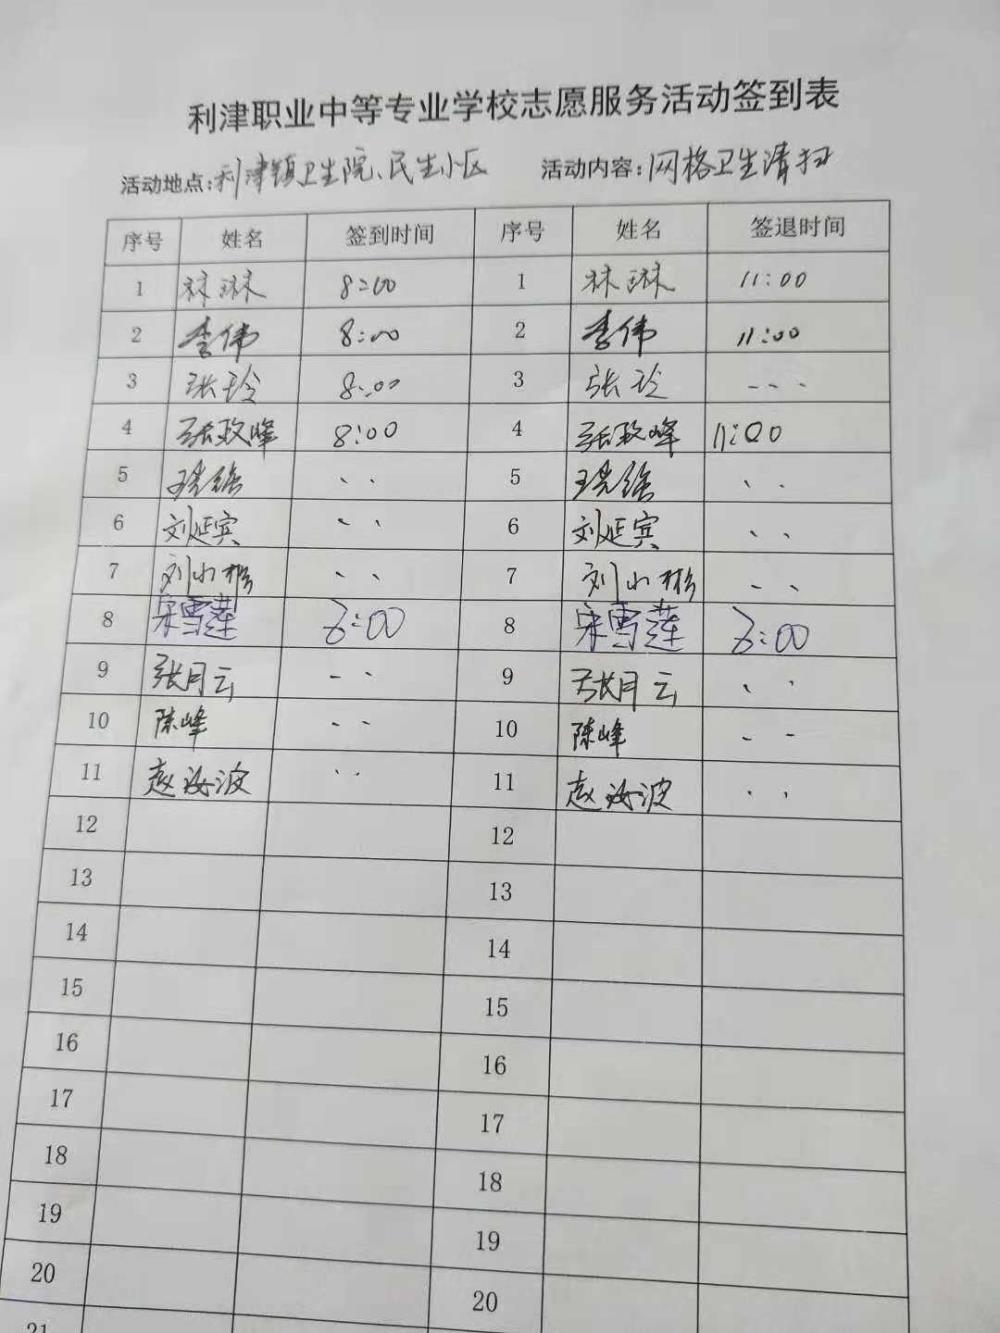 利津职业中等专业学校志愿服务活动签到表
活动地点:利津镇卫生院、民生小区 活动内容:网格卫生清扫
序号 姓名 签到时间 序号 姓名 签退时间
1 林琳 8:00 1 林琳 11:00
2 李伟 8:00 2 李伟 11:00
3 张玲 8:00 3 张玲
4 张政峰 8:00 4 张政峰 11:00
5 5
6 刘延宾 6 刘延宾
7 刘小彬 7 刘小彬
8 宋雪莲 8:00 8 宋雪莲 8:00
9 张月云 9 张月云
10 陈峰 10 陈峰
11 赵海波 11 赵海波
12 12
13 13
14 14
15 15
16 16
17 17
18 18
19 19
20 20
21